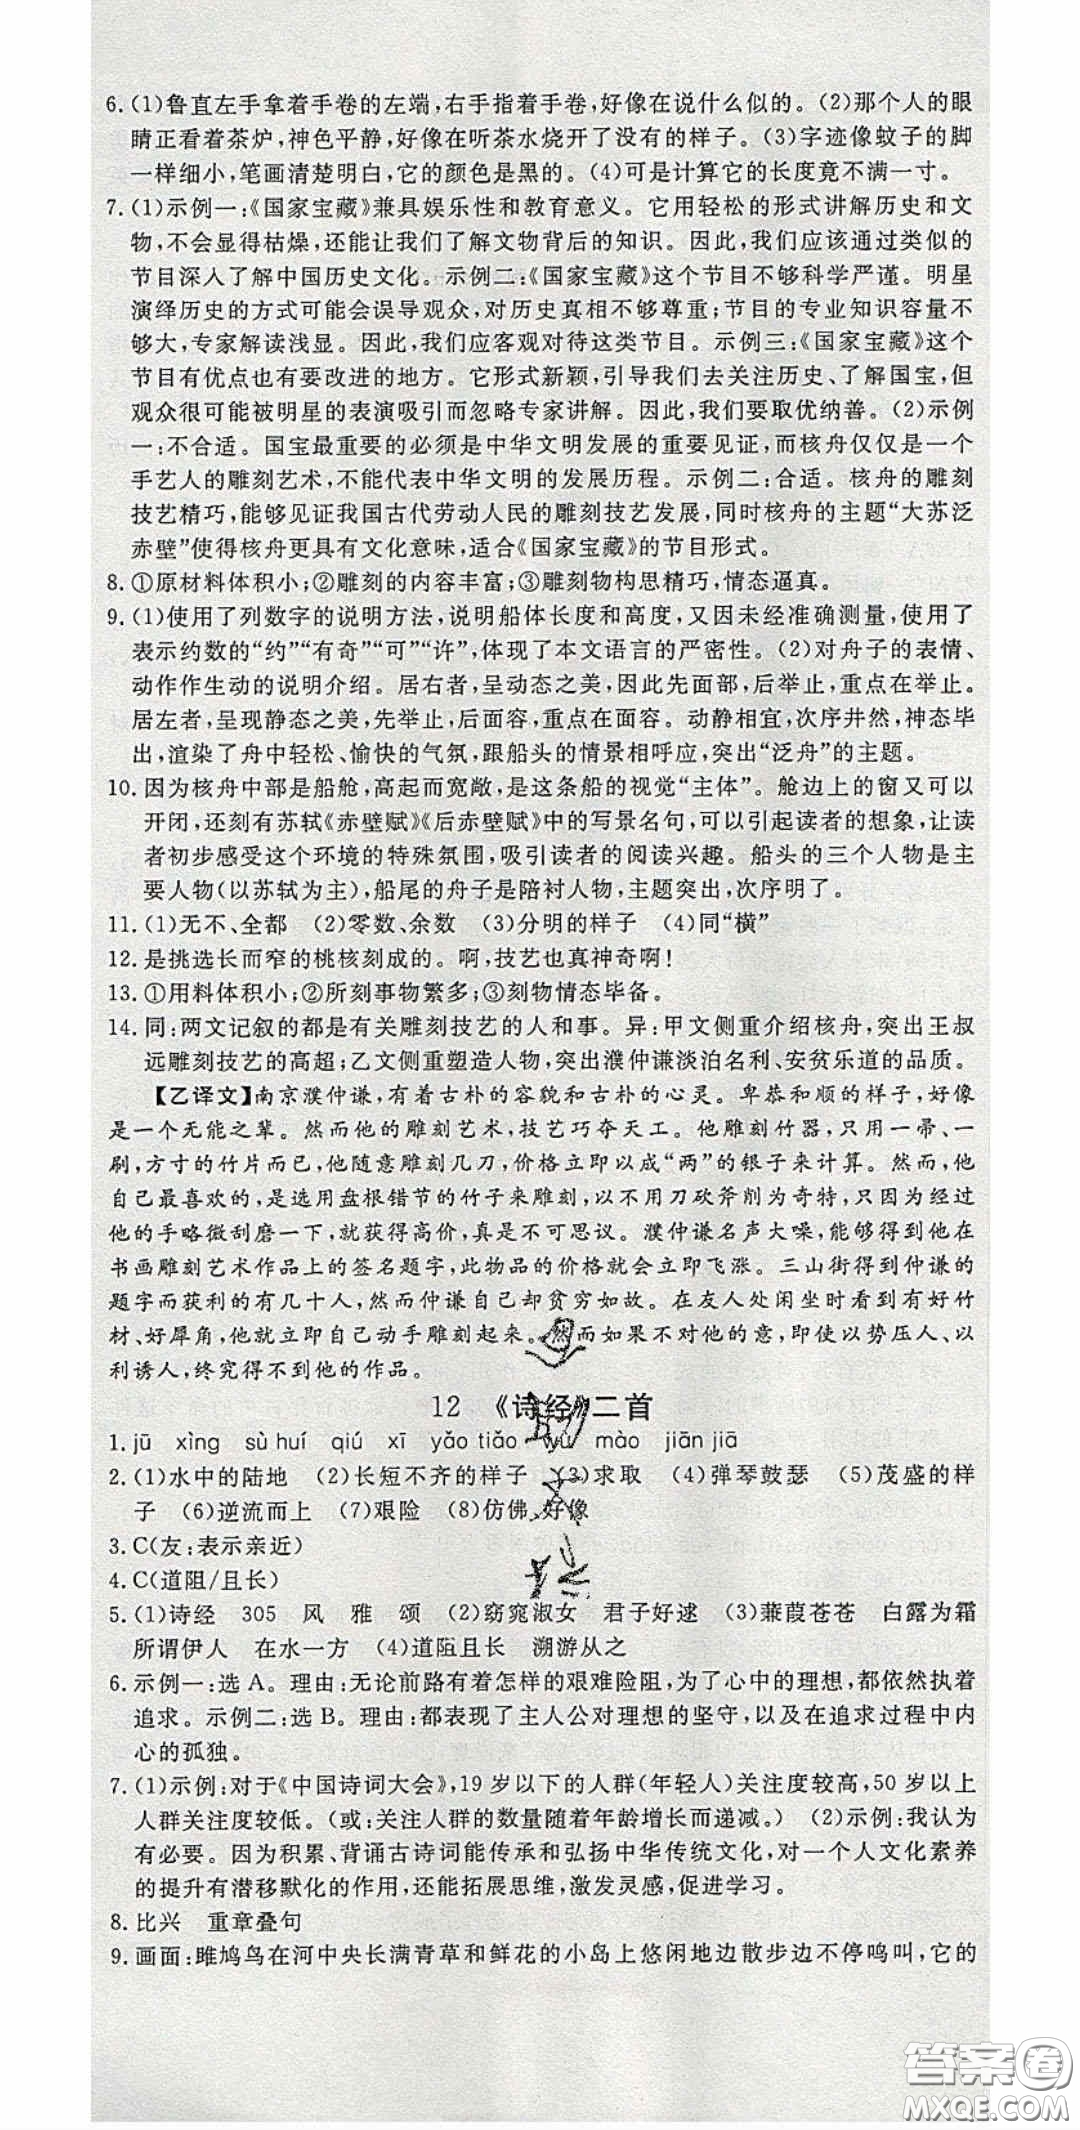 6. (1)鲁直左手拿着手卷的左端,右手指着手卷,好像在说什么似的。(2)那个人的眼
睛正看着茶炉,神色平静,好像在听茶水烧开了没有的样子。(3)字迹像蚊子的脚
一样细小,笔画清楚明白,它的颜色是黑的。(4)可是计算它的长度竟不满一寸。
7. (1)示例一:《国家宝藏》兼具娱乐性和教育意义。它用轻松的形式讲解历史和文
物,不会显得枯燥,还能让我们了解文物背后的知识。因此,我们应该通过类似的
节目深入了解中国历史文化。示例二:《国家宝藏》这个节目不够科学严谨。明星
演绎历史的方式可能会误导观众,对历史真相不够尊重;节目的专业知识容量不
够大,专家解读浅显。因此,我们应客观对待这类节目。示例三:《国家宝藏》这个
节目有优点也有要改进的地方。它形式新颖,引导我们去关注历史、了解国宝,但
观众很可能被明星的表演吸引而忽略专家讲解。因此,我们要取优纳善。(2)示例
一:不合适。国宝最重要的必须是中华文明发展的重要见证,而核舟仅仅是一个
手艺人的雕刻艺术,不能代表中华文明的发展历程。示例二:合适。核舟的雕刻
技艺精巧,能够见证我国古代劳动人民的雕刻技艺发展,同时核舟的主题“大苏泛
赤壁”使得核舟更具有文化意味,适合《国家宝藏》的节目形式。
8. ①原材料体积小;②雕刻的内容丰富;③雕刻物构思精巧,情态逼真。
9. (1)使用了列数字的说明方法,说明船体长度和高度,又因未经准确测量,使用了
表示约数的“约”“有奇”“可”“许”,体现了本文语言的严密性。(2)对舟子的表情、
动作作生动的说明介绍。居右者,呈动态之美,因此先面部,后举止,重点在举止。
居左者,呈现静态之美,先举止,后面容,重点在面容。动静相宜,次序井然,神态毕
出,渲染了舟中轻松、愉快的气氛,跟船头的情景相呼应,突出“泛舟”的主题。
10. 因为核舟中部是船舱,高起而宽敞,是这条船的视觉“主体”。舱边上的窗又可以
开闭,还刻有苏轼《赤壁赋》《后赤壁赋》中的写景名句,可以引起读者的想象,让读
者初步感受这个环境的特殊氛围,吸引读者的阅读兴趣。船头的三个人物是主
要人物(以苏轼为主),船尾的舟子是陪衬人物,主题突出,次序明了。
11. (1)无不、全都 (2)零数、余数 (3)分明的样子 (4)同“横”
12. 是挑选长而窄的桃核刻成的。啊,技艺也真神奇啊!
13. ①用料体积小;②所刻事物繁多;③刻物情态毕备。
14. 同:两文记叙的都是有关雕刻技艺的人和事。异:甲文侧重介绍核舟,突出王叔
远雕刻技艺的高超;乙文侧重塑造人物,突出濮仲谦淡泊名利、安贫乐道的品质。
【乙译文】南京濮仲谦,有着古朴的容貌和古朴的心灵。卑恭和顺的样子,好像
是一个无能之辈。然而他的雕刻艺术,技艺巧夺天工。他雕刻竹器,只用一帚、一
刷,方寸的竹片而已,他随意雕刻几刀,价格立即以成“两”的银子来计算。然而,他
自己最喜欢的,是选用盘根错节的竹子来雕刻,以不用刀砍斧削为奇特,只因为经过
他的手略微刮磨一下,就获得高价,真是不可思议。濮仲谦名声大嗓,能够得到他在
书画雕刻艺术作品上的签名题字,此物品的价格就会立即飞涨。三山街得到仲谦的
题字而获利的有几十人,然而仲谦自己却贫穷如故。在友人处闲坐时看到有好竹
材、好犀角,他就立即自己动手雕刻起来。然而如果不对他的意,即使以势压人、以
利诱人,终究得不到他的作品。
12 《诗经》二首
1. jū xìng sù huí qiú xī yǎo tiǎo wù mào jiān jiā
2. (1)水中的陆地 (2)长短不齐的样子 (3)求取 (4)弹琴鼓瑟 (5)茂盛的样
子 (6)逆流而上 (7)艰险 (8)仿佛,好像
3. C(友:表示亲近)
4. C(道阻/且长)
5. (1)诗经 305 风 雅 颂 (2)窈窕淑女 君子好逑 (3)蒹葭苍苍 白露为霜
所谓伊人 在水一方 (4)道阻且长 溯游从之
6. 示例一:选A。理由:无论前路有着怎样的艰难险阻,为了心中的理想,都依然执着
追求。示例二:选B。理由:都表现了主人公对理想的坚守,以及在追求过程中内
心的孤独。
7. (1)示例:对于《中国诗词大会》,19岁以下的人群(年轻人)关注度较高,50岁以上
人群关注度较低。(或:关注人群的数量随着年龄增长而递减。) (2)示例:我认为
有必要。因为积累、背诵古诗词能传承和弘扬中华传统文化,对一个人文化素养
的提升有潜移默化的作用,还能拓展思维,激发灵感,促进学习。
8. 比兴 重章叠句
9. 画面:雎鸠鸟在河中央长满青草和鲜花的小岛上悠闲地边散步边不停鸣叫,它的
答案圈
MXQE.COM